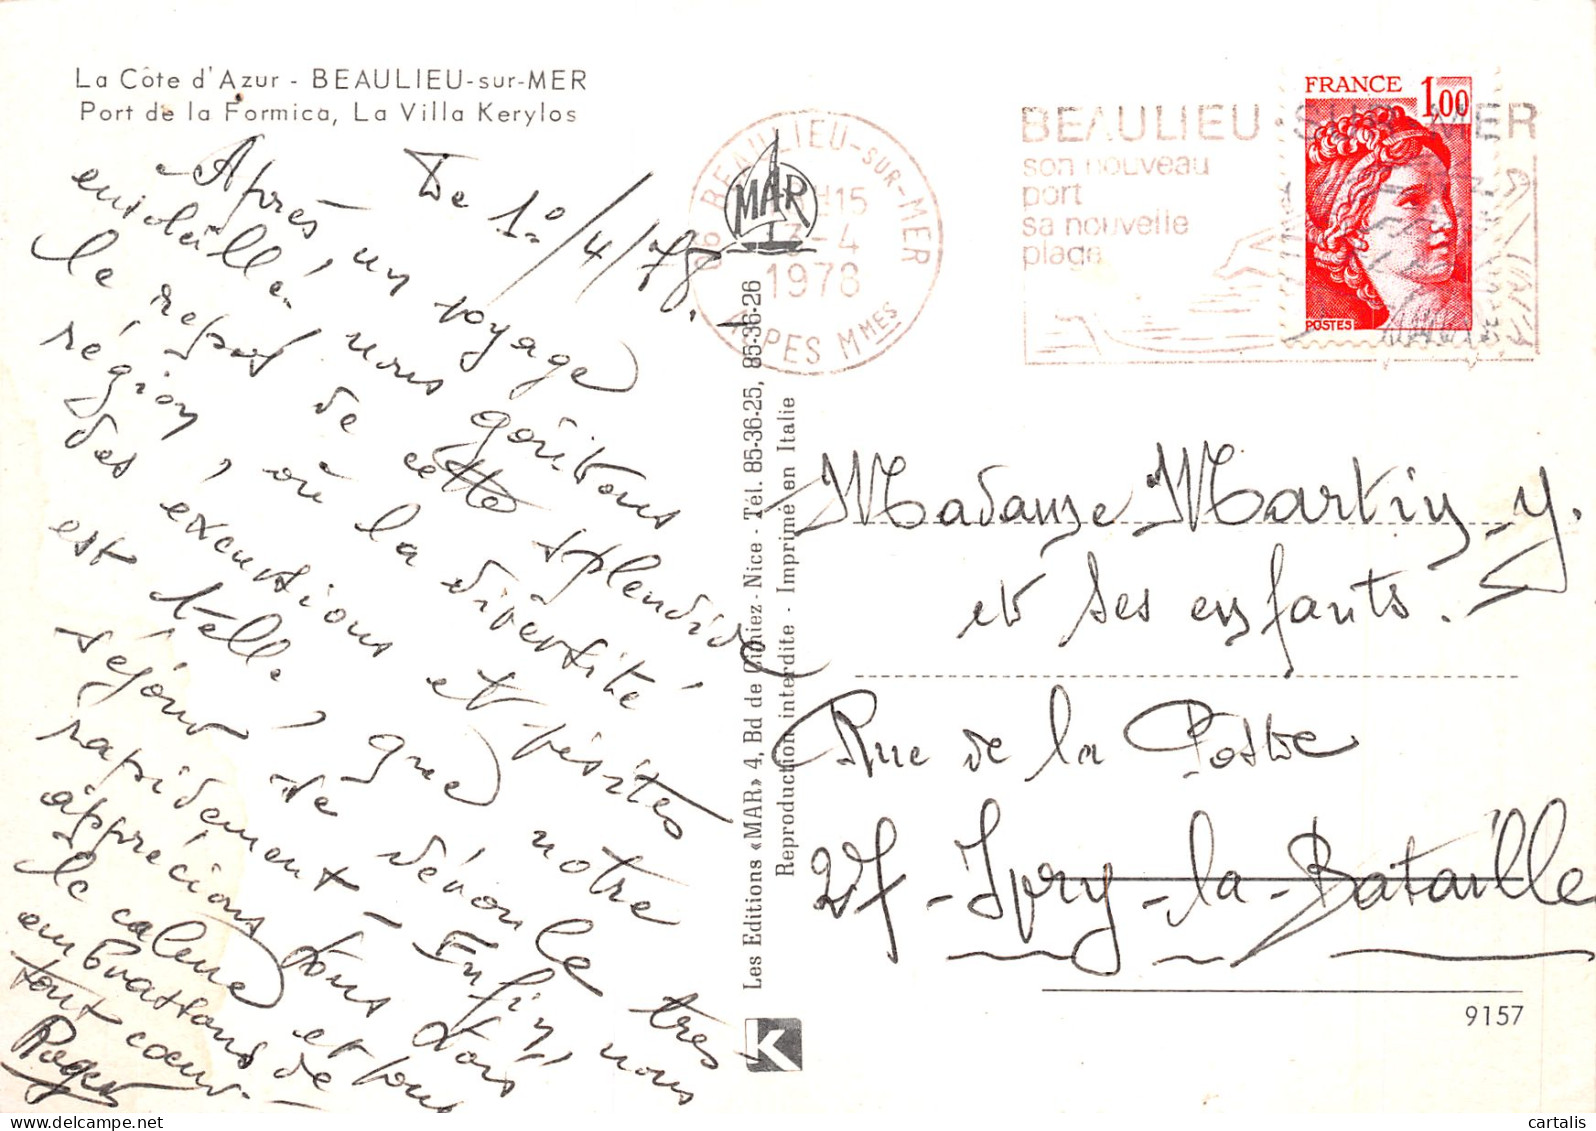 La Côte d'Azur - BEAULIEU-sur-MER
Port de la Formica, La Villa Kerylos
De 1º/4/78.
Après un voyage
ensoleillé, nous goûtons
le repos de cette splendide
région, où la diversité
des excursions et visites
est telle, que notre
séjour se dévoule très
rapidement - Enfin, nous
apprécions tous trois
le calme et vous
embrassons de
tout cœur.
Roger
MAR
06 BEAULIEU-SUR-MER
H15
13-4
1978
ALPES MMES
BEAULIEU SUR MER
son nouveau
port
sa nouvelle
plage
FRANCE 1,00
POSTES
Les Editions «MAR» 4, Bd de Cimiez - Nice - Tél. 85-36-25, 85-36-26
Reproduction interdite - Imprimé en Italie
Madame Martin-y.
et ses enfants.
Rue de la Poste
27 - Ivry-la-Bataille
K
9157
cartalis
www.delcampe.net